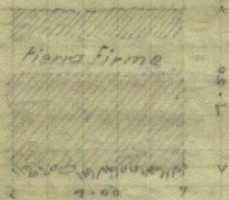 tierra firme
1.50
1.00